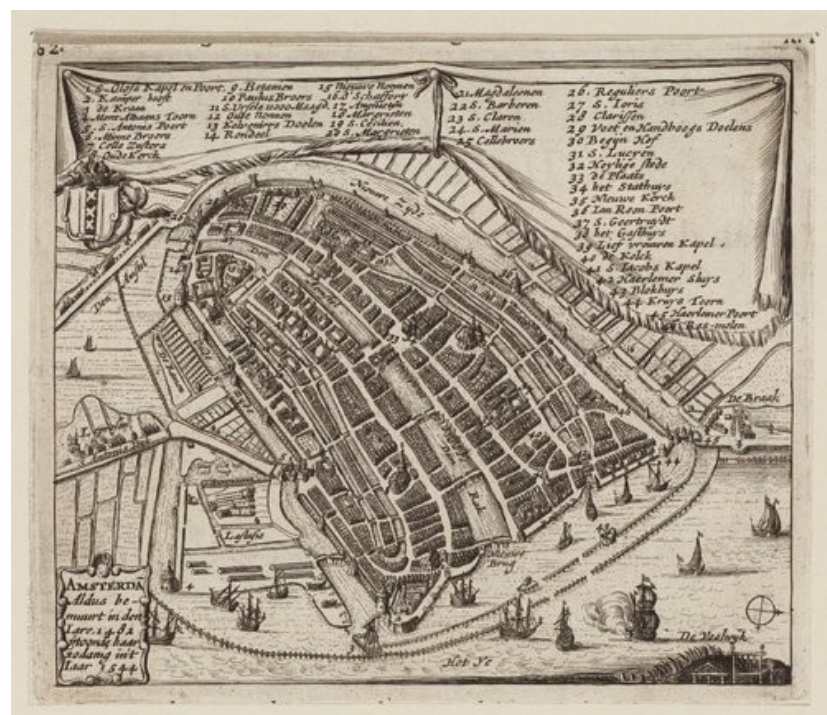 62.
1 S. Olofs Kapel en Poort.
2. Kamper hooft
3 de Kraan
4 Mont Albaens Toorn
5. S. Antonis Poort
6 Minne Broers
7 Celle Zusters
8 Oude Kerck
9. Betanien
10 Paulus Broers
11 S. Ursels 11000 Maagd.
12 Oude Nonnen
13 Kolveniers Doelen
14 Rondeel
15 Nieuwe Nonnen
17 Augustijn
18 Margrieten
19 S. Cecilien.
20 S. Margrieten
21 Magdalenen
22 S. Barberen
23 S. Claren
24 S. Marien
25 Cellebroers
26. Reguliers Poort
27 S. Joris
28 Clarissen
29 Voet en Handboogs Doelens
30 Begijn Hof
31 S. Lucyen
32 Heylige stede
33 de Plaats
34 het Stathuys
35 Nieuwe Kerck
36 Ian Roon Poort
37 S. Geertruydt
38 het Gasthuys
39 Lief vrouwen Kapel.
40 de Kolck
41 S. Iacobs Kapel
42 Haerlemer Sluys
43 Blokhuys
44 Kruys Toorn
45 Haerlemer Poort
46 Ros-molen
Nieuwe Zyde
Den Amstel
De Braak
Lastasie
Nieuwe
Brug
Het Ye
De Voolwyk
AMSTERDÃ
Aldus be-
muurt in den
Iare. 1482
vtoonde haar
zodanig int
Iaar 1544